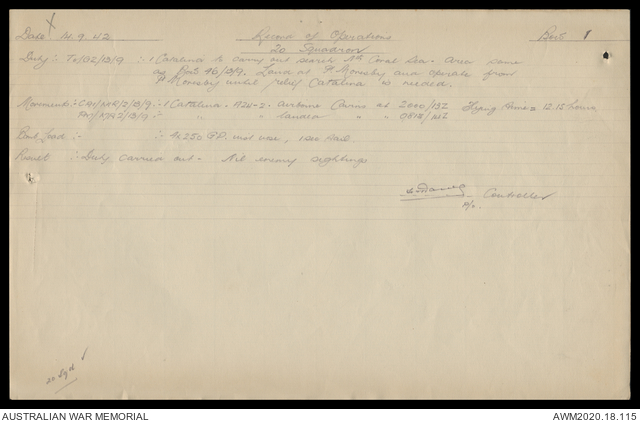 X
Date 14.9.42 Record of Operations Box 1
20 Squadron
Duty :- To/ /13/9 :- 1 Catalina to carry out search Nth Coral Sea. Area same
as 46/13/9. Land at Pt Moresby and operate from
Pt Moresby until relief Catalina is needed.
Movements :- /13/9 :- 1 Catalina. A24-2. airborne Cairns at 2000/13Z Flying time = 12.15 hours
/13/9 :- " " landed " " 0815/14Z
Bomb Load :- :- 4x250 GP. inst nose, 1 sec tail.
Result :- Duty carried out. Nil enemy sightings
P/O. Controller
20 Sqd
AUSTRALIAN WAR MEMORIAL AWM2020.18.115